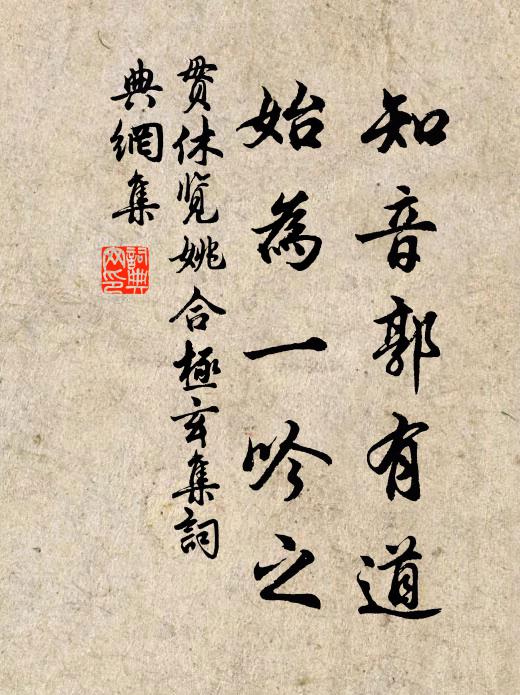 知音郭有道
始為一吟之
贯休览姚合極玄集詞
典網集
詞典網印